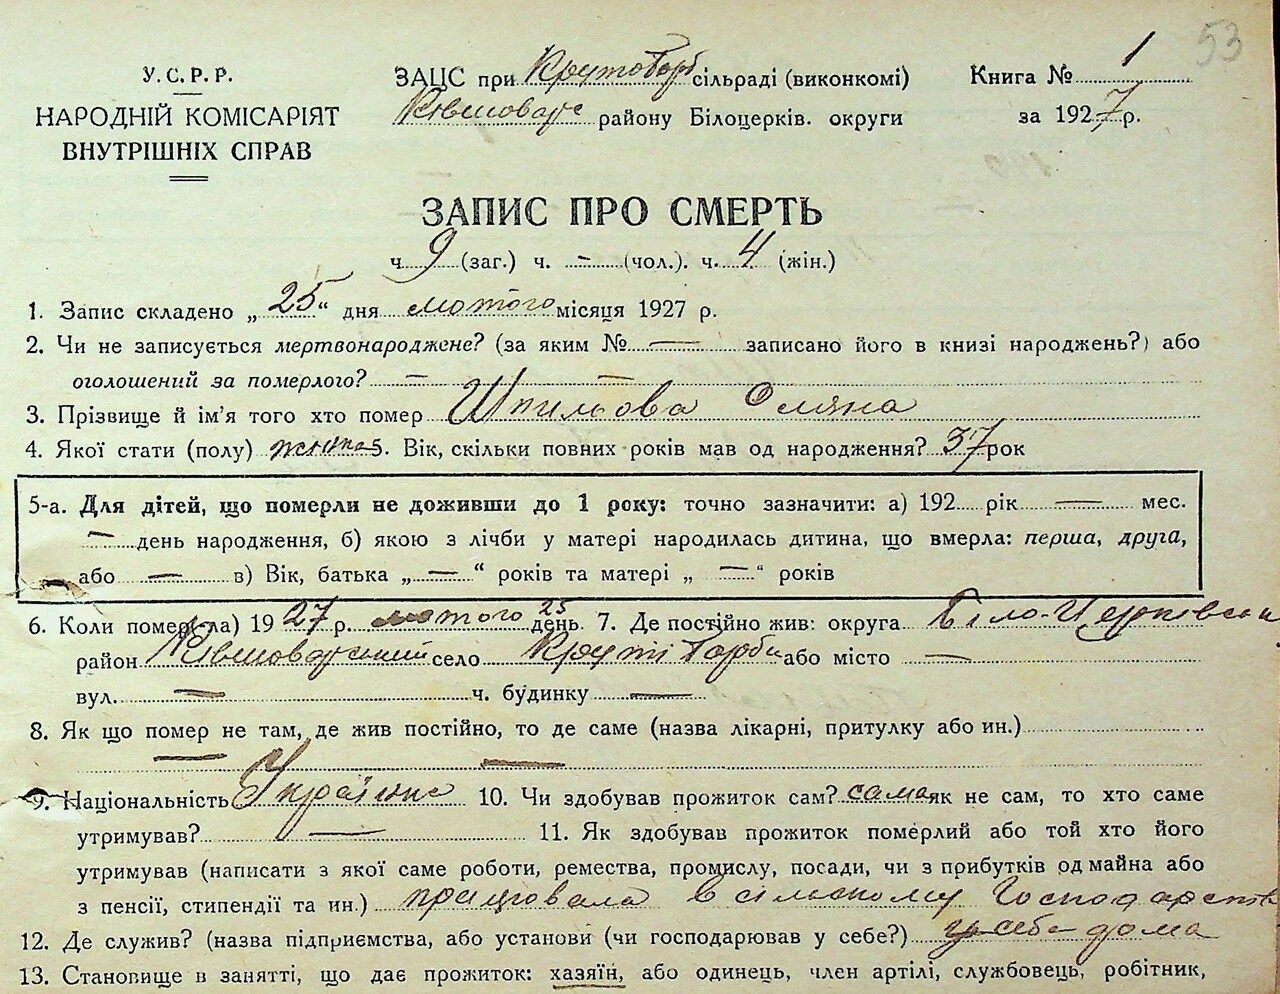 53
У.С.Р.Р.
НАРОДНІЙ КОМІСАРІЯТ
ВНУТРІШНІХ СПРАВ
ЗАЦС при Крутогорб сільраді (виконкомі)
Ківшоват району Білоцерків. округи
Книга № 1
за 1927 р.
ЗАПИС ПРО СМЕРТЬ
ч. 9 (заг.) ч. – (чол.). ч. 4 (жін.)
1. Запис складено „25“ дня лютого місяця 1927 р.
2. Чи не записується мертвонароджене? (за яким № — записано його в книзі народжень?) або
оголошений за померлого? — —
3. Прізвище й ім'я того хто помер Шпильова Оляна
4. Якої стати (полу) жіноча 5. Вік, скільки повних років мав од народження? 37 рок
5-а. Для дітей, що померли не доживши до 1 року: точно зазначити: а) 192 рік — мес.
— день народження, б) якою з лічби у матері народилась дитина, що вмерла: перша, друга,
або — в) Вік, батька „—“ років та матері „—“ років
6. Коли помер(-ла) 1927 р. лютого 25 день. 7. Де постійно жив: округа Біло-Церківськ
район Ківшоватський село Круті Горби або місто —
вул. — ч. будинку —
8. Як що помер не там, де жив постійно, то де саме (назва лікарні, притулку або ин.)
— —
9. Національність Українка 10. Чи здобував прожиток сам? сама як не сам, то хто саме
утримував? — 11. Як здобував прожиток померлий або той хто його
утримував (написати з якої саме роботи, ремества, промислу, посади, чи з прибутків од майна або
з пенсії, стипендії та ин.) працювала в сільскому господарств
12. Де служив? (назва підприємства, або установи (чи господарював у себе?) у себе дома
13. Становище в занятті, що дає прожиток: хазяїн, або одинець, член артілі, службовець, робітник,